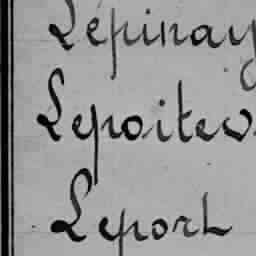 Lépinay
Lepoitev
Leport